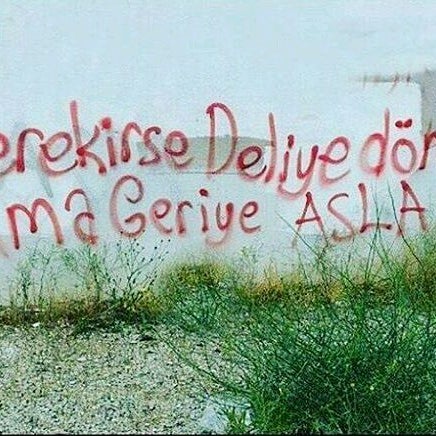 erekirse Deliye dön
ma Geriye ASLA